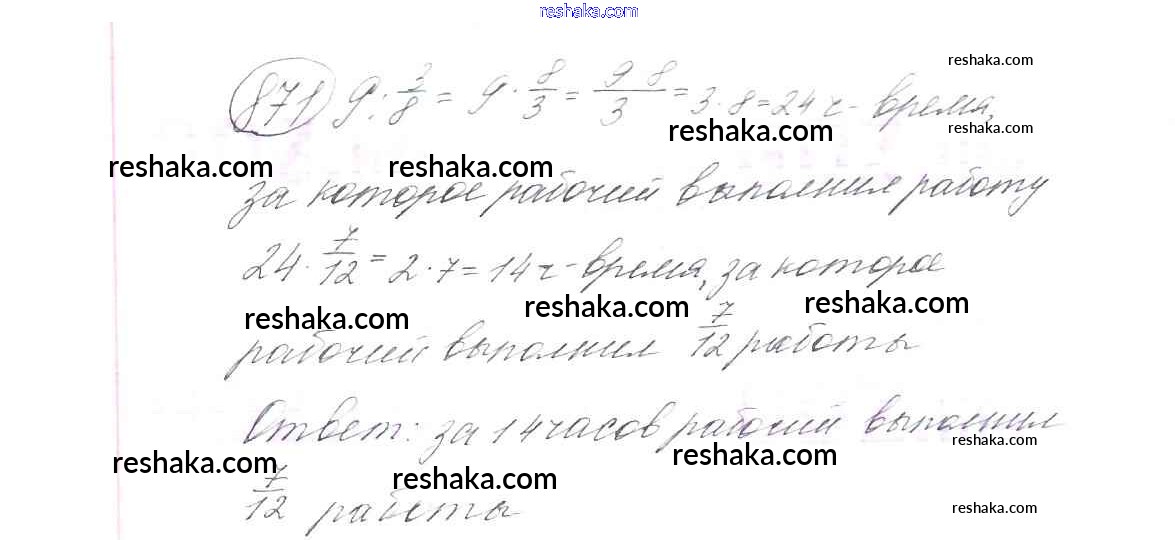 reshaka.com
871 9 : 3/8 = 9 · 8/3 = 9 8/3 = 3 · 8 = 24 ч - время,
reshaka.com
reshaka.com
reshaka.com
reshaka.com reshaka.com
за которое рабочий выполнил работу
24 · 7/12 = 2 · 7 = 14 ч - время, за которое
reshaka.com reshaka.com reshaka.com
рабочий выполнил 7/12 работы
Ответ: за 14 часов рабочий выполнил
reshaka.com
reshaka.com reshaka.com reshaka.com
7/12 работы
reshaka.com